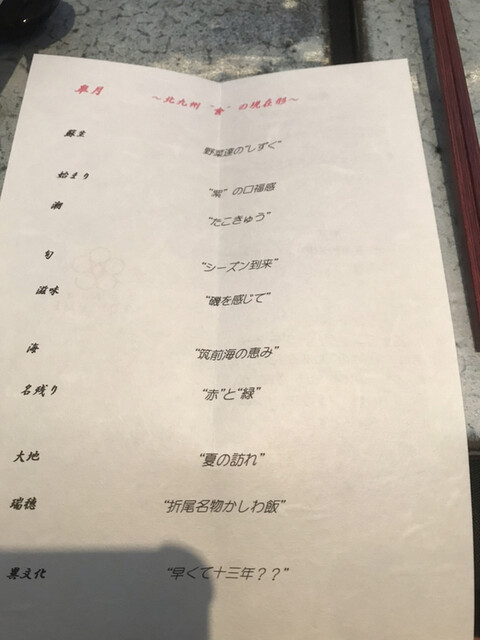 皐月 ～北九州 “食” の現在形～
蘇生 野菜達の“しずく”
始まり “紫” の口福感
潮 “たこきゅう”
旬 “シーズン到来”
滋味 “磯を感じて”
海 “筑前海の恵み”
名残り “赤”と“緑”
大地 “夏の訪れ”
瑞穂 “折尾名物かしわ飯”
異文化 “早くて十三年？？”